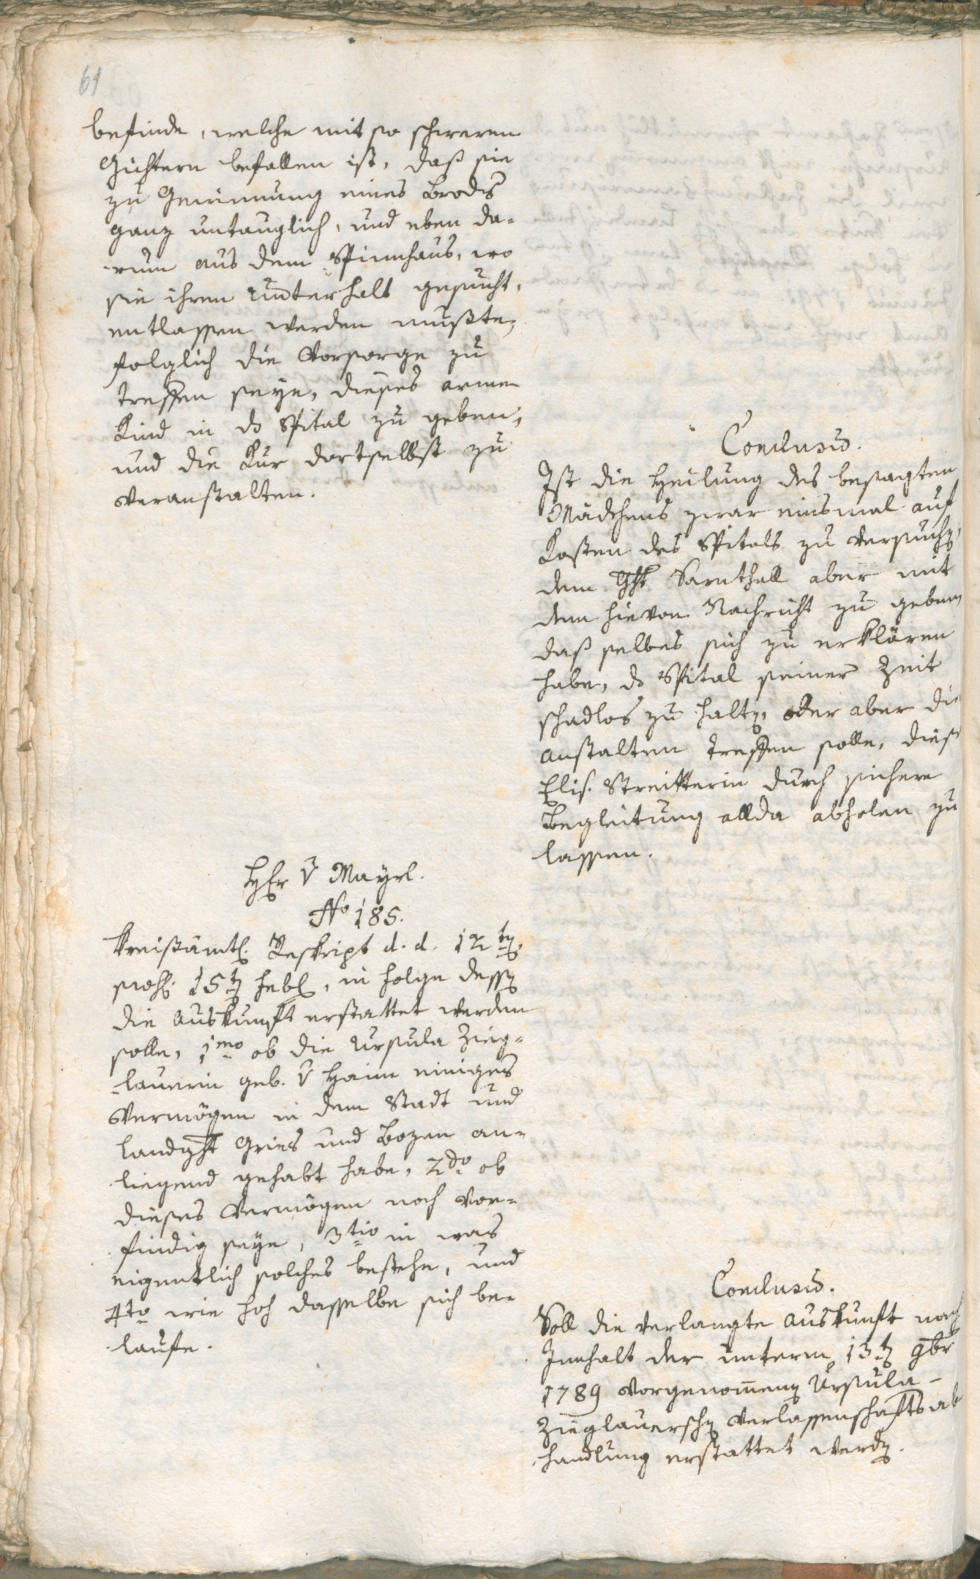 61
befinde, welche mit so schweren
Gichtern befallen ist, daß sie
zu Gewinnung eines Brodes
ganz untauglich, und eben da-
rum aus dem Spinnhaus, wo
sie ihren Unterhalt gesucht,
entlassen werden mußte,
folglich die Vorsorge zu
treffen seye, dieses arme
Kind in ds Spital zu geben,
und die Kur dortselbst zu
veranstalten.
Conclusum.
Ist die Heilung des besagten
Mädchens zwar einsmal auf
Kosten des Spitals zu versuchen,
dem Ght Sarnthall aber mit
dem hievon Nachricht zu geben,
daß selbes sich zu erklären
habe, ds Spital seiner Zeit
schadlos zu halten, oder aber die
Anstalten treffen solle, diese
Elis. Streitterin durch sichere
Begleitung allda abholen zu
lassen.
Hr v Mayrl.
No 185.
Kreisämtl. Reskript d. d. 12ten
15ten Feb, in Folge dessen
die Auskunft erstattet werden
solle, 1mo ob die Ursula Zieg-
lauerin geb. v Haim einiges
Vermögen in dem Stadt und
Landght Gries und Bozen an-
liegend gehabt habe, 2do ob
dieses Vermögen noch vor-
findig seye, 3tio in was
eigentlich solches bestehe, und
4to wie hoch dasselbe sich be-
laufe.
Conclusum.
Soll die verlangte Auskunft nach
Innhalt der unterm 13ten 9br
1789 vorgenommenen Ursula-
Zieglauerschen Verlassenschaftsab
handlung erstattet werden.